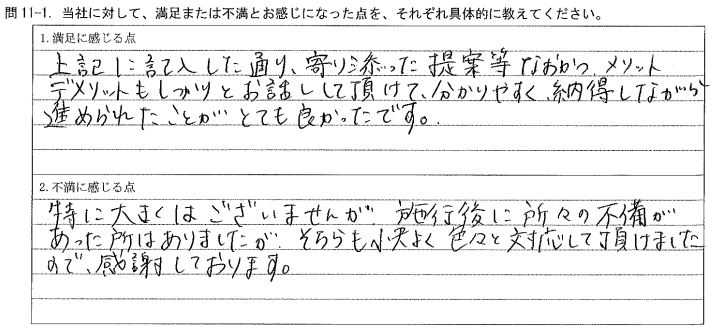 問11-1. 当社に対して、満足または不満とお感じになった点を、それぞれ具体的に教えてください。
1. 満足に感じる点
上記に記入した通り、寄り添った提案等なおかつ、メリット
デメリットもしっかりとお話しして頂けて、分かりやすく、納得しながら
進められたことがとても良かったです。
2. 不満に感じる点
特に大きくはございませんが、施行後に所々の不備が
あった所はありましたが、そちらも心よく色々と対応して頂けました
ので、感謝しております。